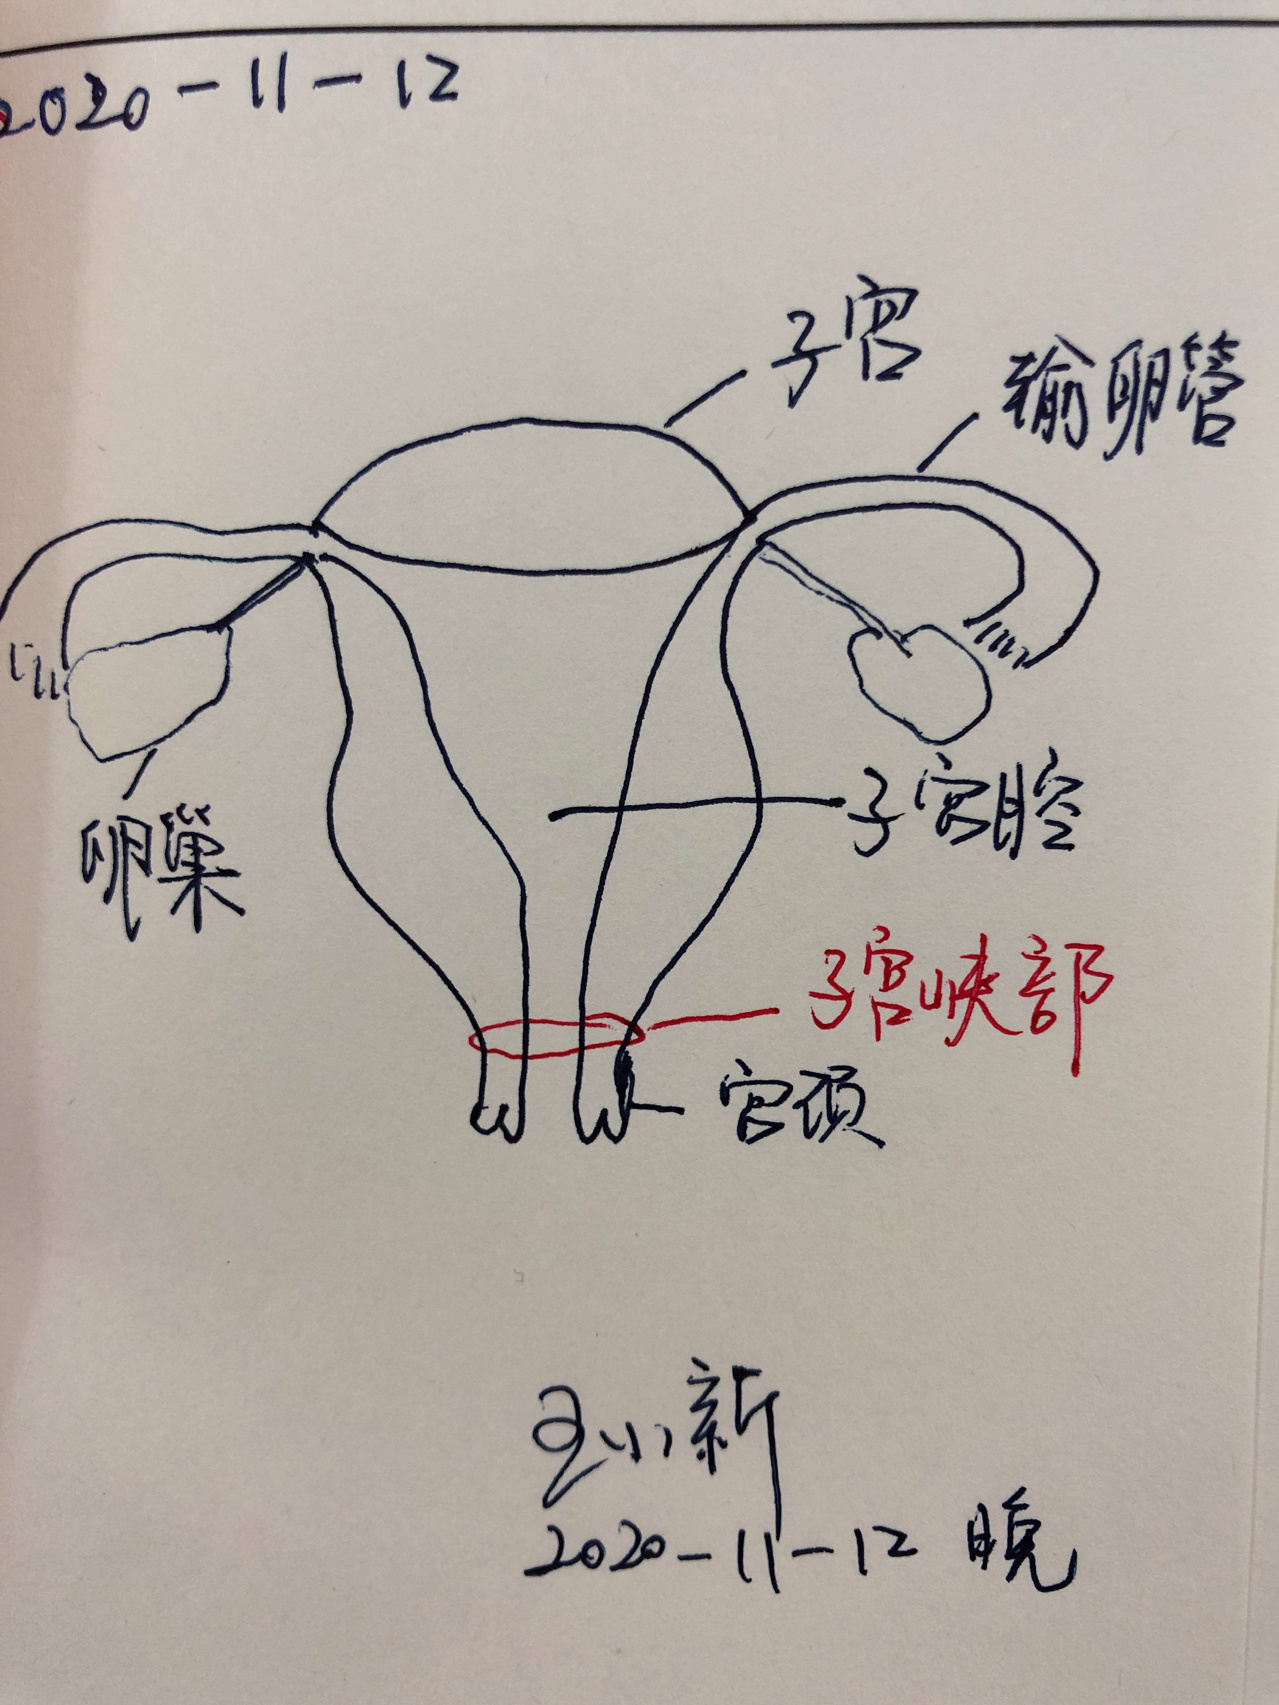 2020-11-12
子宫
输卵管
子宫腔
卵巢
子宫峡部
宫颈
王小新
2020-11-12 晚